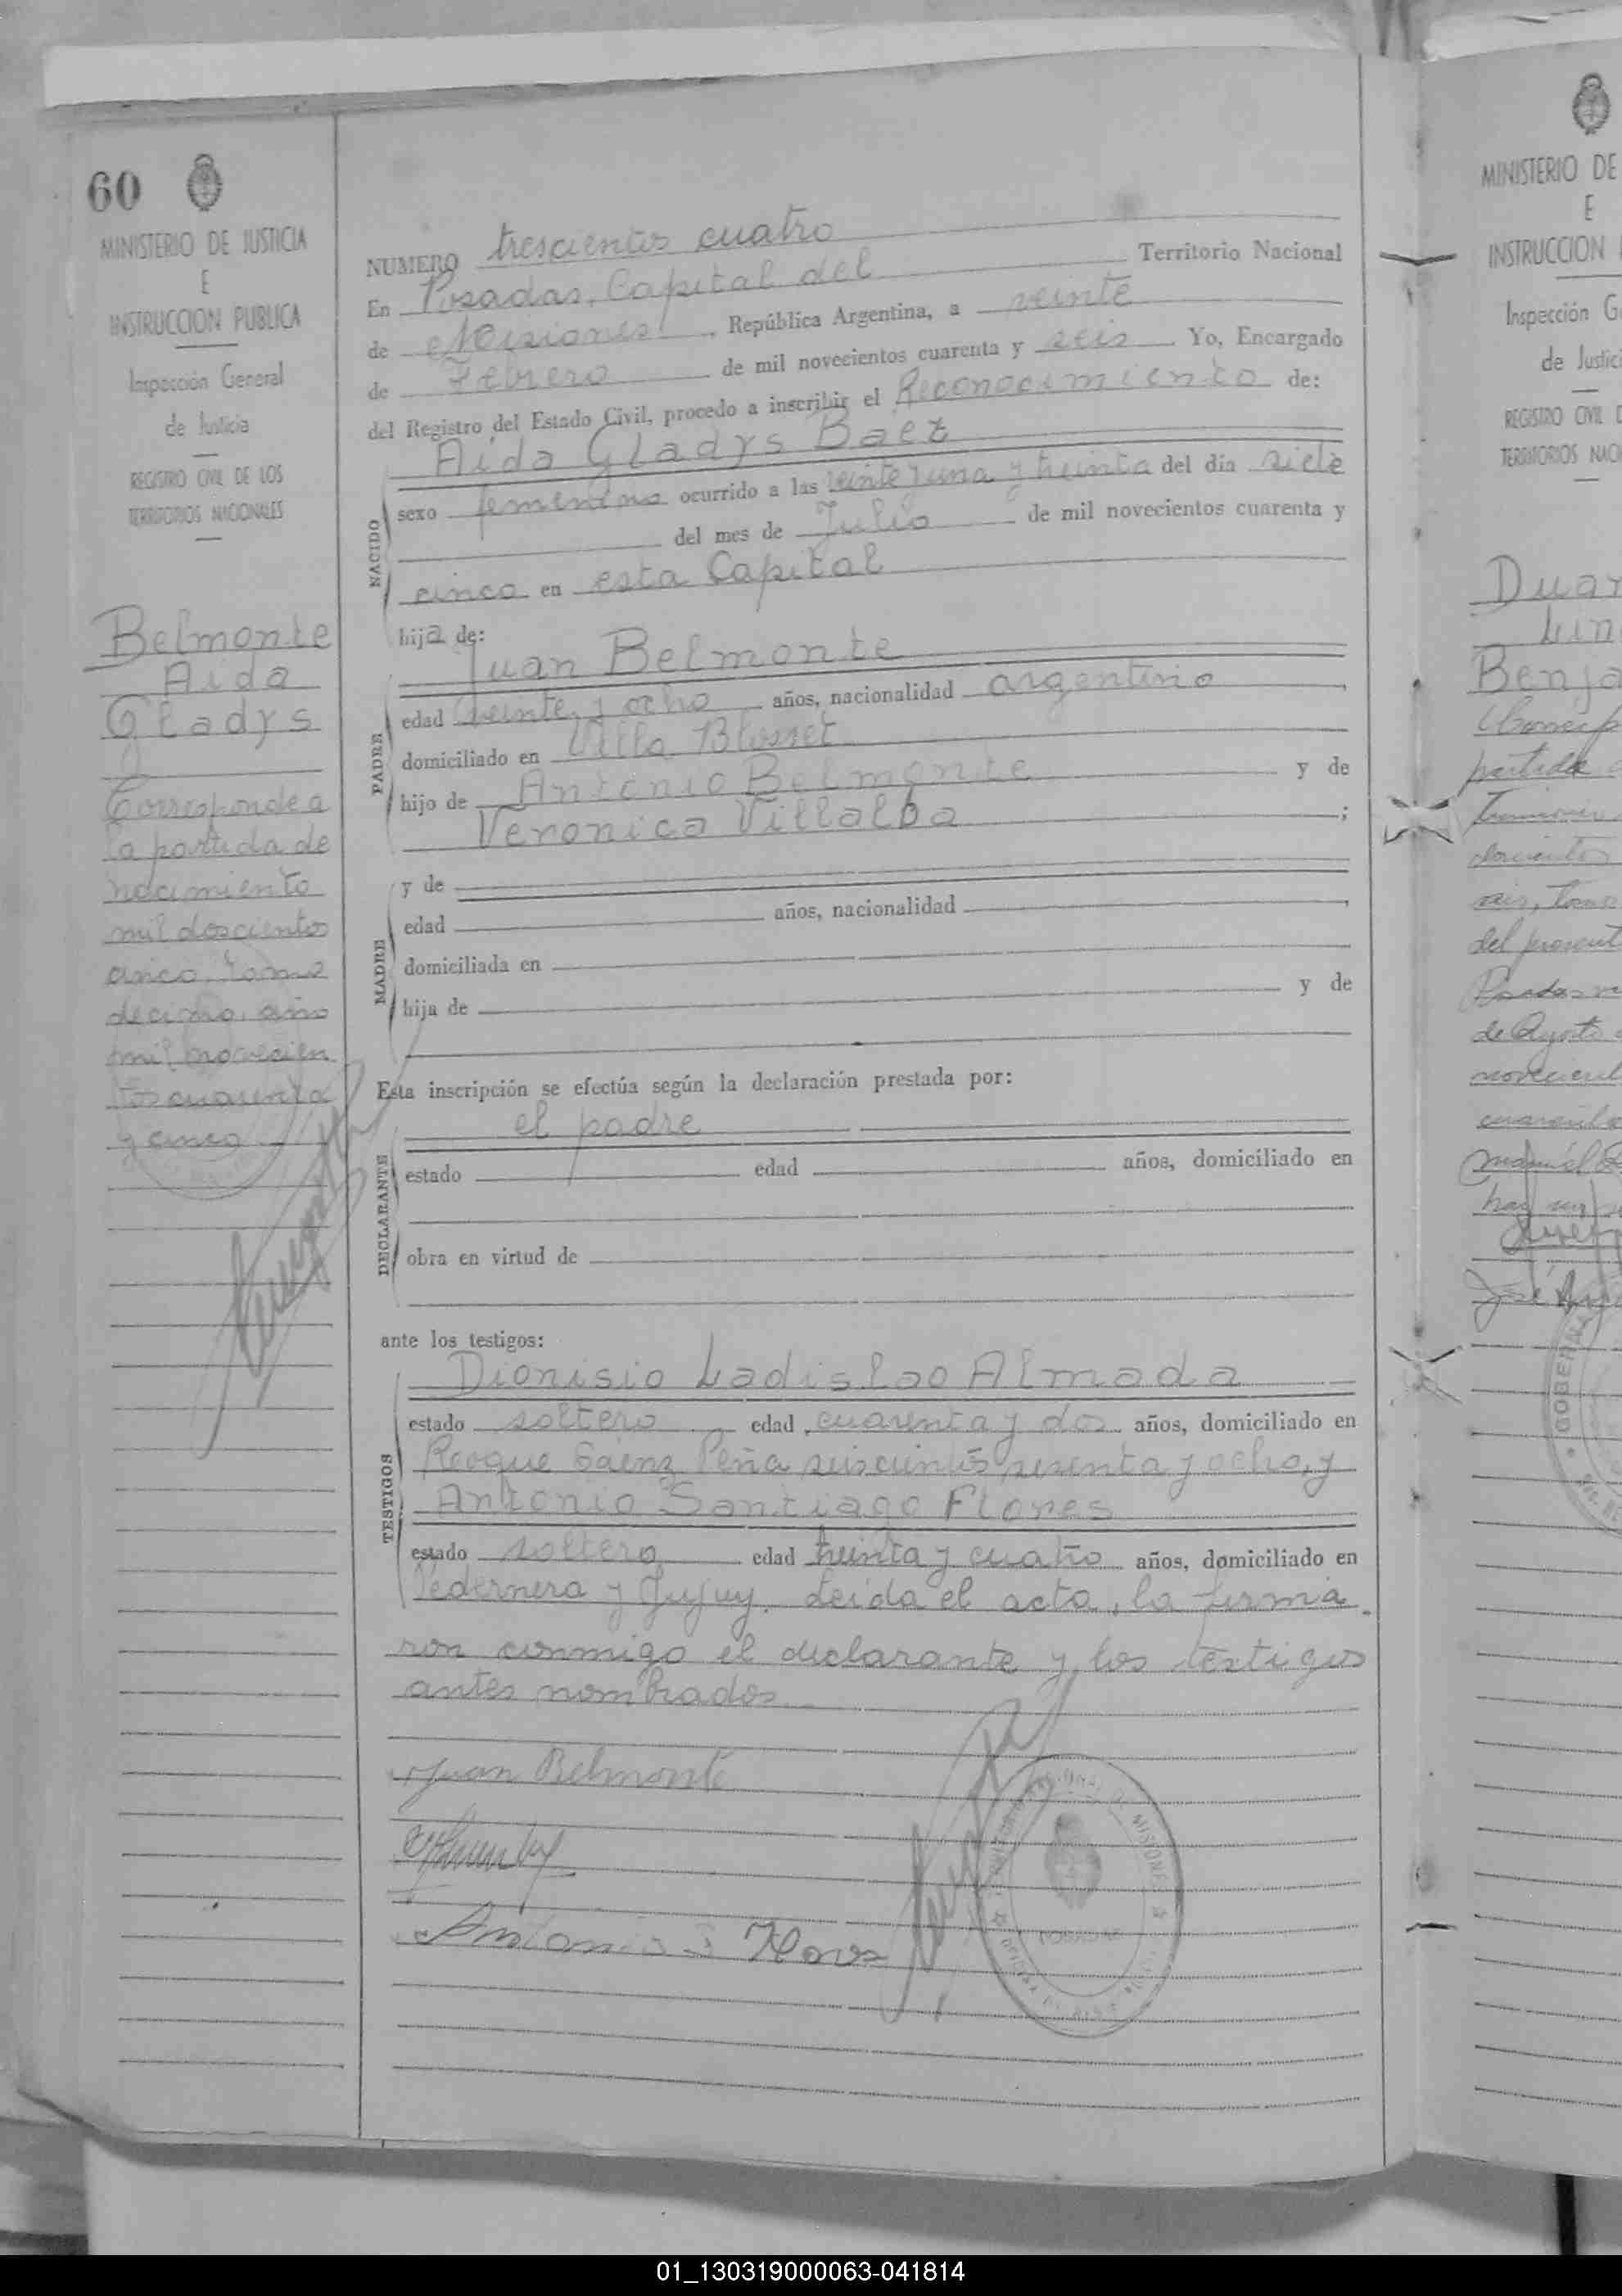 60
MINISTERIO DE JUSTICIA
E
INSTRUCCION PUBLICA
Inspección General
de Justicia
REGISTRO CIVIL DE LOS
TERRITORIOS NACIONALES
Belmonte
Aida
Gladys
Corresponde a
la partida de
nacimiento
mil doscientos
cinco, Tomo
decimo, año
mil novecien
tos cuarenta
y cinco
NUMERO trescientos cuatro
En Posadas, Capital del Territorio Nacional
de Misiones, República Argentina, a veinte
de Febrero de mil novecientos cuarenta y seis Yo, Encargado
del Registro del Estado Civil, procedo a inscribir el Reconocimiento de:
Aida Gladys Baez
NACIDO
sexo femenino ocurrido a las veinte y una y treinta del día siete
del mes de Julio de mil novecientos cuarenta y
cinco en esta Capital
hija de:
Juan Belmonte
PADRE
edad veinte y ocho años, nacionalidad argentino,
domiciliado en Villa Blosset
hijo de Antonio Belmonte y de
Veronica Villalba;
MADRE
y de
edad años, nacionalidad,
domiciliada en
hija de y de
Esta inscripción se efectúa según la declaración prestada por:
el padre
DECLARANTE
estado edad años, domiciliado en
obra en virtud de
ante los testigos:
Dionisio Ladislao Almada
TESTIGOS
estado soltero edad cuarenta y dos años, domiciliado en
Rooque Saenz Peña seiscientos sesenta y ocho, y
Antonio Santiago Flores
estado soltero edad treinta y cuatro años, domiciliado en
Pedernera y Jujuy. Leida el acta, la firma
ron conmigo el declarante y los testigos
antes nombrados
Juan Belmonte
Antonio S Flores
MISIONES
POSADAS
MINISTERIO DE
E
INSTRUCCION
Inspección G
de Justici
REGISTRO CIVIL D
TERRITORIOS NACI
Duar
Lin
Benja
partida
del present
de Agosto
José
GOBERNA
01_130319000063-041814